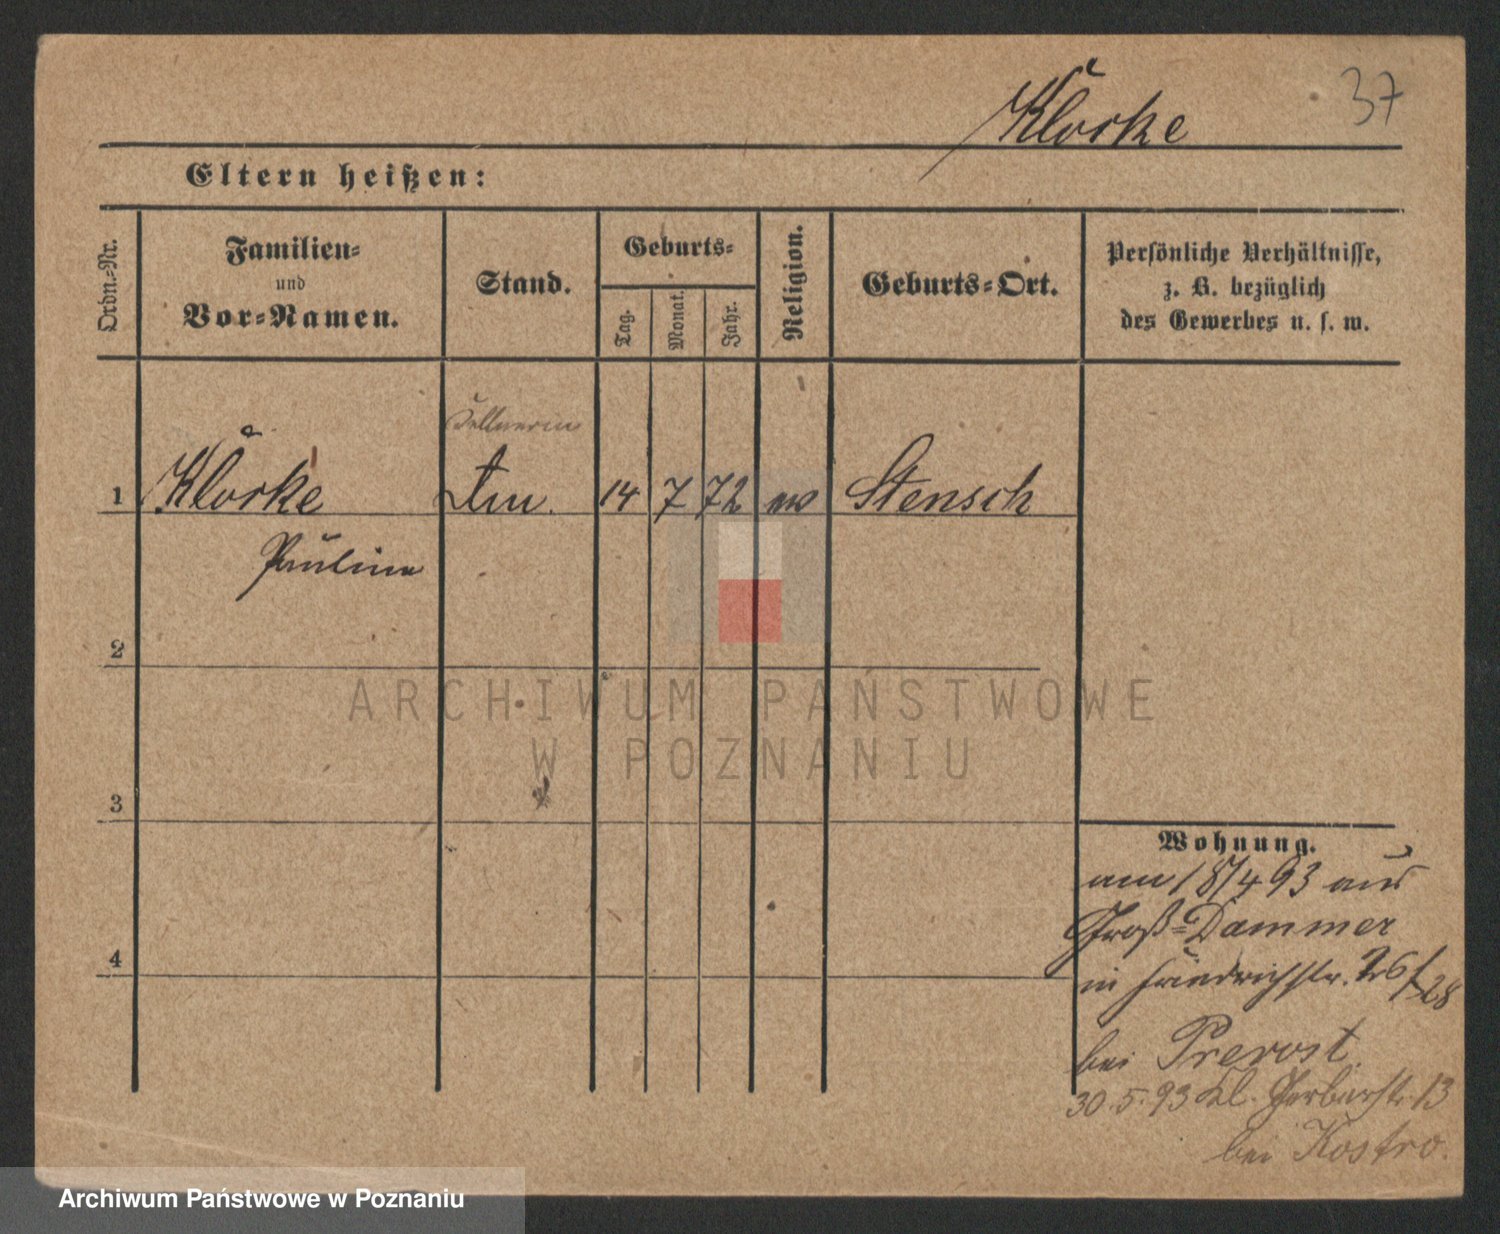 Klorke
37
Eltern heißen:
Ordn.-Nr.
Familien-
und
Vor-Namen.
Stand.
Geburts-
Tag.
Monat.
Jahr.
Religion.
Geburts-Ort.
Persönliche Verhältnisse,
z. B. bezüglich
des Gewerbes u. s. w.
Kellnerin
1 Klorke 14 7 72 Stensch
Pauline
2
ARCHIWUM PAŃSTWOWE
W POZNANIU
3
Wohnung.
am 18/4 93 aus
Groß-Dammer
in Friedrichstr. 26/28
bei Prevost
30.5.93 Kl. Gerberstr. 13
bei Kostro.
4
Archiwum Państwowe w Poznaniu